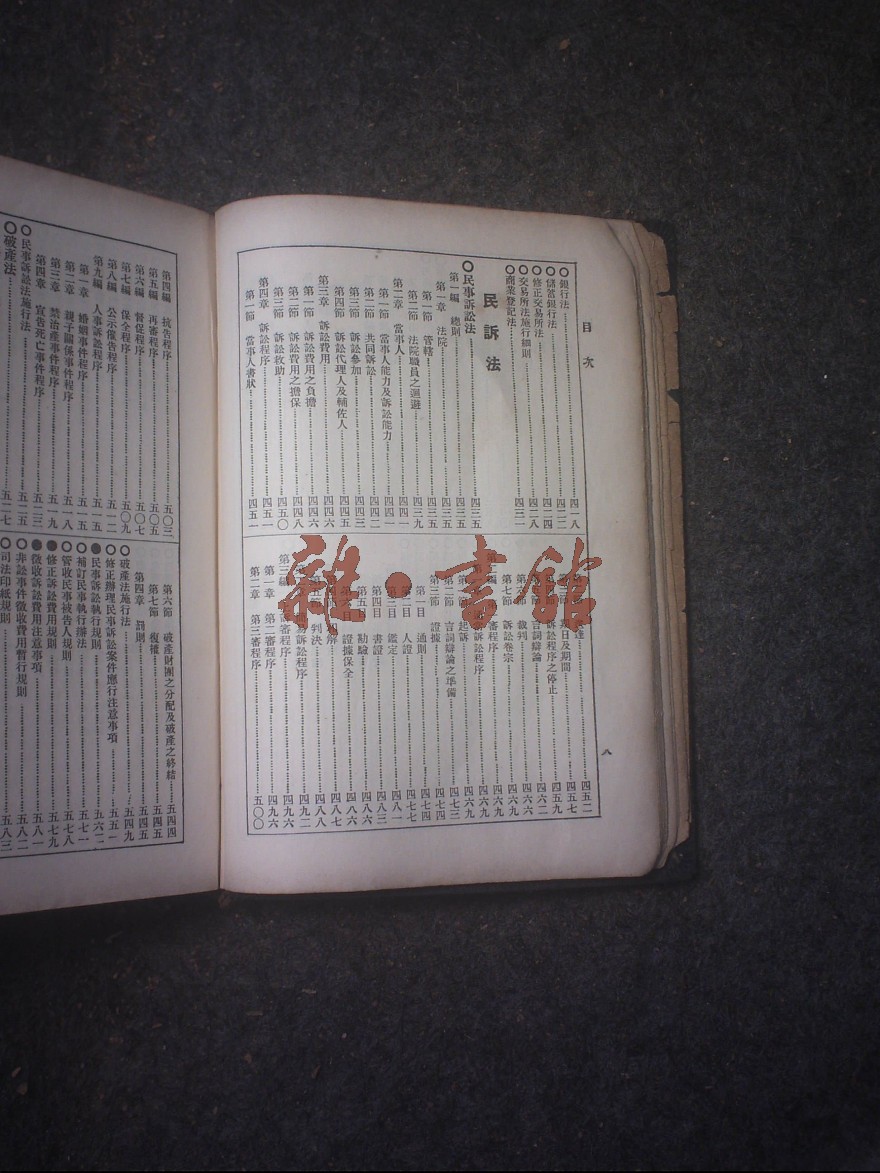 目次
〇銀行法 四一八
〇儲蓄銀行法 四二二
〇修正交易所法 四二四
〇交易所法施行細則 四二八
〇商業登記法 四三一
民訴法
〇民事訴訟法 四三五
第一編 總則 四三五
第一章 法院 四三五
第一節 管轄 四三五
第二節 法院職員之迴避 四三九
第二章 當事人 四四一
第一節 當事人能力及訴訟能力 四四一
第二節 共同訴訟 四四二
第三節 訴訟參加 四四三
第四節 訴訟代理人及輔佐人 四四五
第三章 訴訟費用 四四六
第一節 訴訟費用之負擔 四四六
第二節 訴訟費用之擔保 四四八
第三節 訴訟救助 四五〇
第四章 訴訟程序 四五一
第一節 當事人書狀 四五一
達 四五二
日及期間 四五七
訟程序之停止 四五九
言詞辯論 四六二
裁判 四六六
第七節 訴訟卷宗 四六九
審程序 四六九
訴訟程序 四六九
起訴 四六九
第二節 言詞辯論之準備 四七三
第三節 證據 四七四
第一目 通則 四七四
第二目 人證 四七七
第三目 鑑定 四八一
第四目 書證 四八三
第五目 勘驗 四八六
目 證據保全 四八六
解 四八七
判決 四八八
易訴訟程序 四九二
第三編 審程序 四九六
第一章 第二審程序 四九六
第二章 第三審程序 五〇〇
八
雜·書館
第四編 抗告程序 五〇三
第五編 再審程序 五〇五
第六編 督促程序 五〇七
第七編 保全程序 五〇九
第八編 公示催告程序 五一二
第九編 人事訴訟程序 五一五
第一章 婚姻事件程序 五一五
第二章 親子關係事件程序 五一八
第三章 禁治產事件程序 五一九
第四章 宣告死亡事件程序 五二三
〇民事訴訟法施行法 五二五
〇破產法 五二七
第六節 破產財團之分配及破產之終結 五四四
第七節 復權 五四五
第四章 罰則 五四五
〇破產法施行法 五四九
〇修正辦理民事訴訟案件應行注意事項 五五一
●民事訴訟執行規則 五六二
〇補訂民事執行辦法 五七一
〇管收民事被告人規則 五七八
●修正訴訟費用規則 五七九
●徵收訴訟費用注意事項 五八一
〇非訟事件徵收費用暫行規則 五八二
〇司法印紙規則 五八三